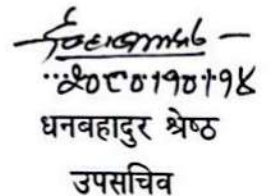 ...२०८०।१०।१४
धनवहादुर श्रेष्ठ
उपसचिव